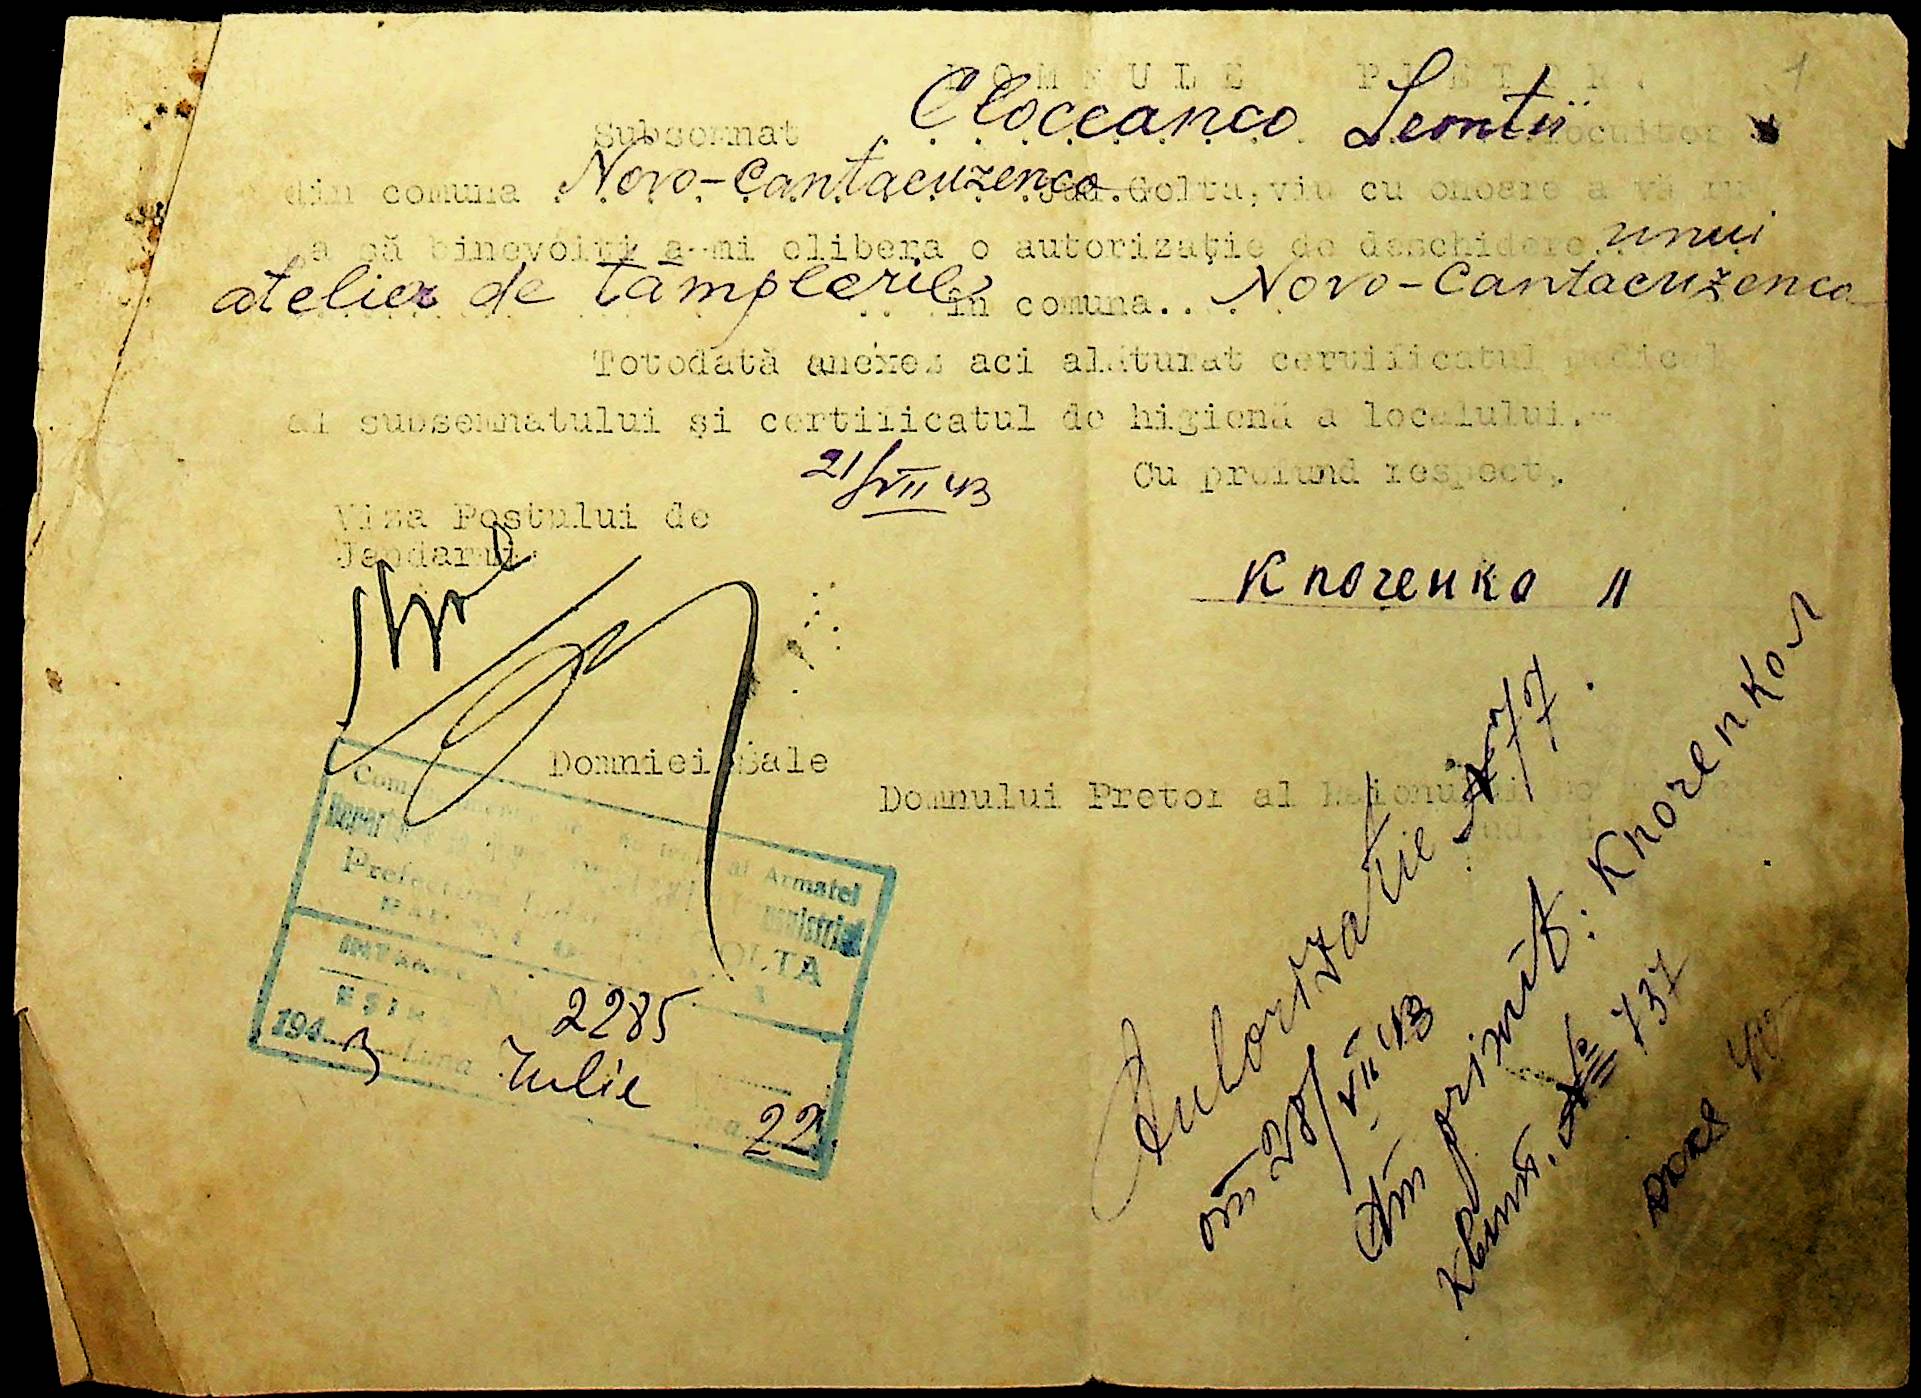 DOMNULE PRETOR. 1
Subsemnat Cloceanco Leontii locuitor
din comuna Novo-Cantacuzenco jud.Golta, viu cu onoare a vă ru
ga să binevoiţi a-mi elibera o autorizaţie de deschidere unui
atelier de tâmplerile în comuna.. Novo-Cantacuzenco
Totodată anexez aci alăturat certificatul medical
al subsemnatului şi certificatul de higienă a localului.-
21/VII 43 Cu profund respect,
Viza Postului de
Jandarmi
Клогенко Л
Domniei Sale
Domnului Pretor al Raionului
al Armatei
Prefectura GOLTA
2285
194 3 Luna Iulie 22
Autorizatie № 77.
din 28/VII 43
Am primit: Клогенко Л
№ 737